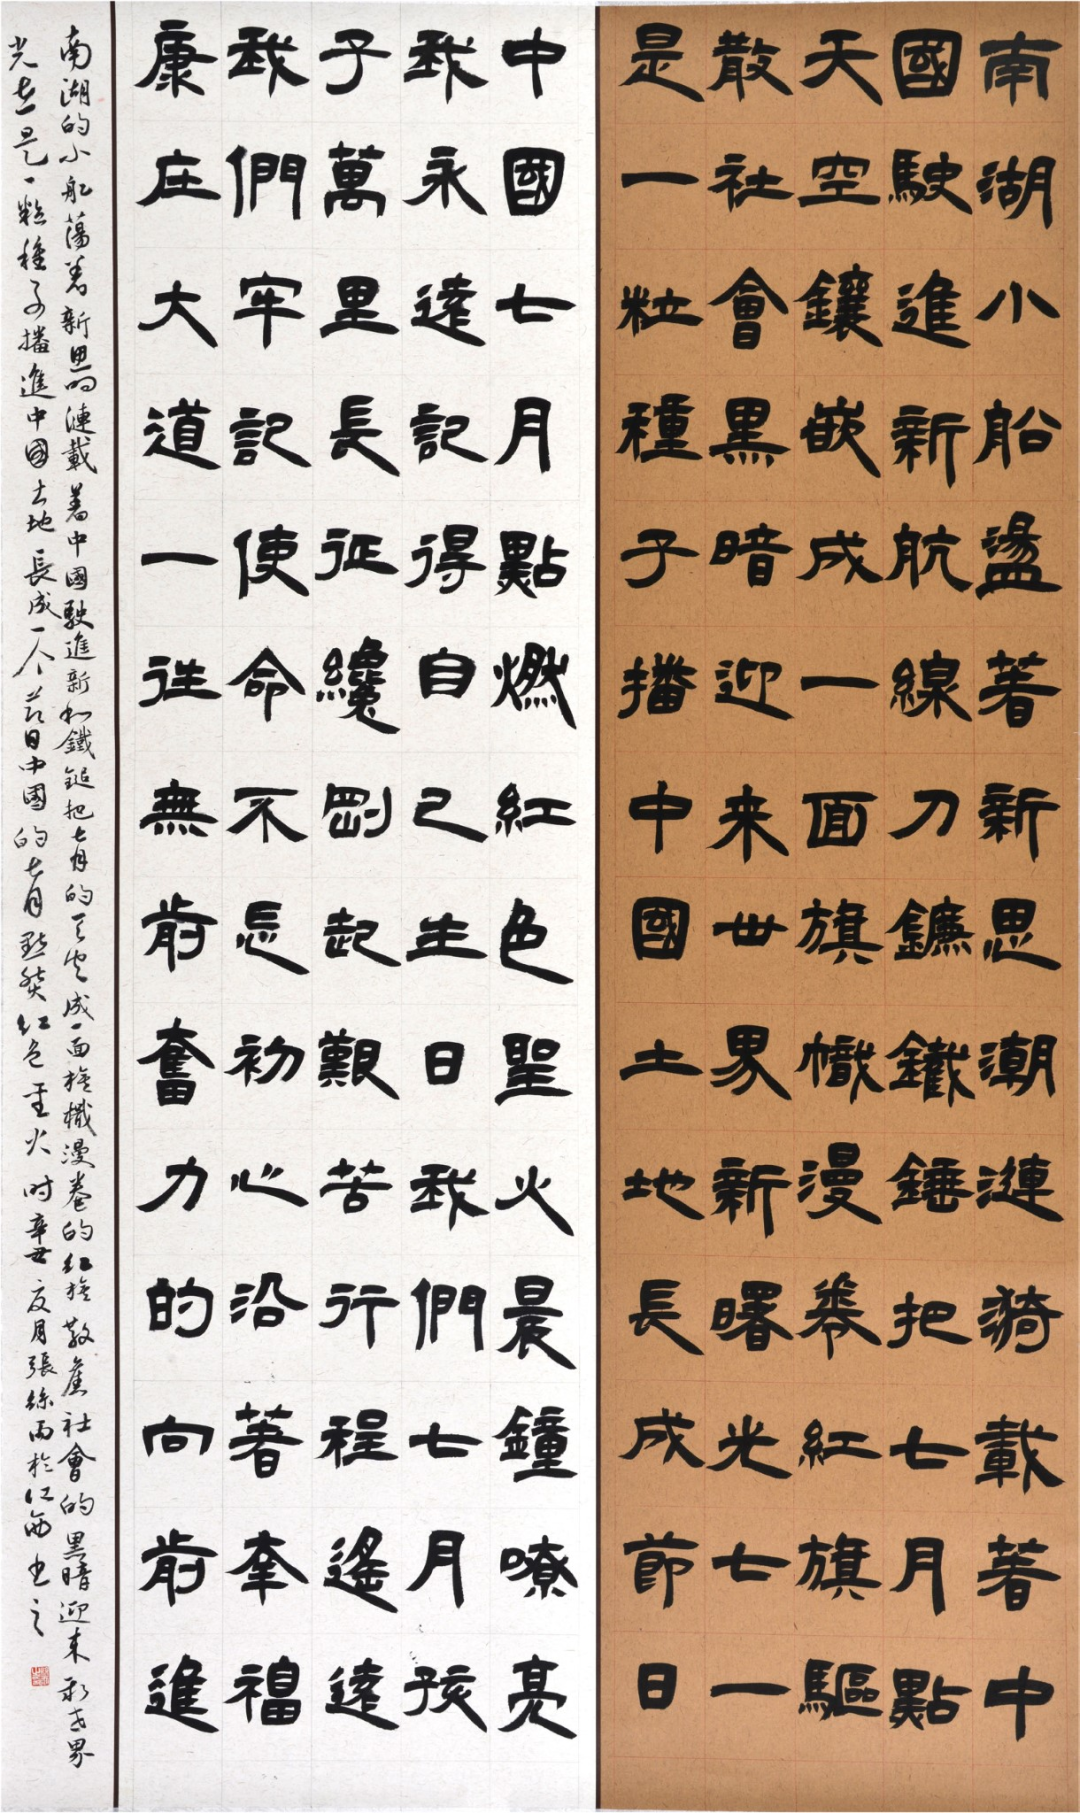 南湖小船盪著新思潮漣漪載著中
國駛進新航線刀鐮鐵錘把七月點
天空鑲嵌成一面旗幟漫卷紅旗驅
散社會黑暗迎来世界新曙光七一
是一粒種子播中國土地長成節日
中國七月點燃紅色聖火晨鐘嘹亮
我永遠記得自己生日我們七月孩
子萬里長征纔剛起艱苦行程遙遠
我們牢記使命不忘初心沿著幸福
康庄大道一往無前奮力的向前進
南湖的小船蕩着新思的漣載着中國駛進新和鐵鎚把七月的天空成一面旗幟漫卷的紅旗散舊社會的黑暗迎来新世界
光七是一粒種子播進中國土地長成一个節日中國的七月點燃紅色聖火时辛丑夏月張綠雨於江西書之